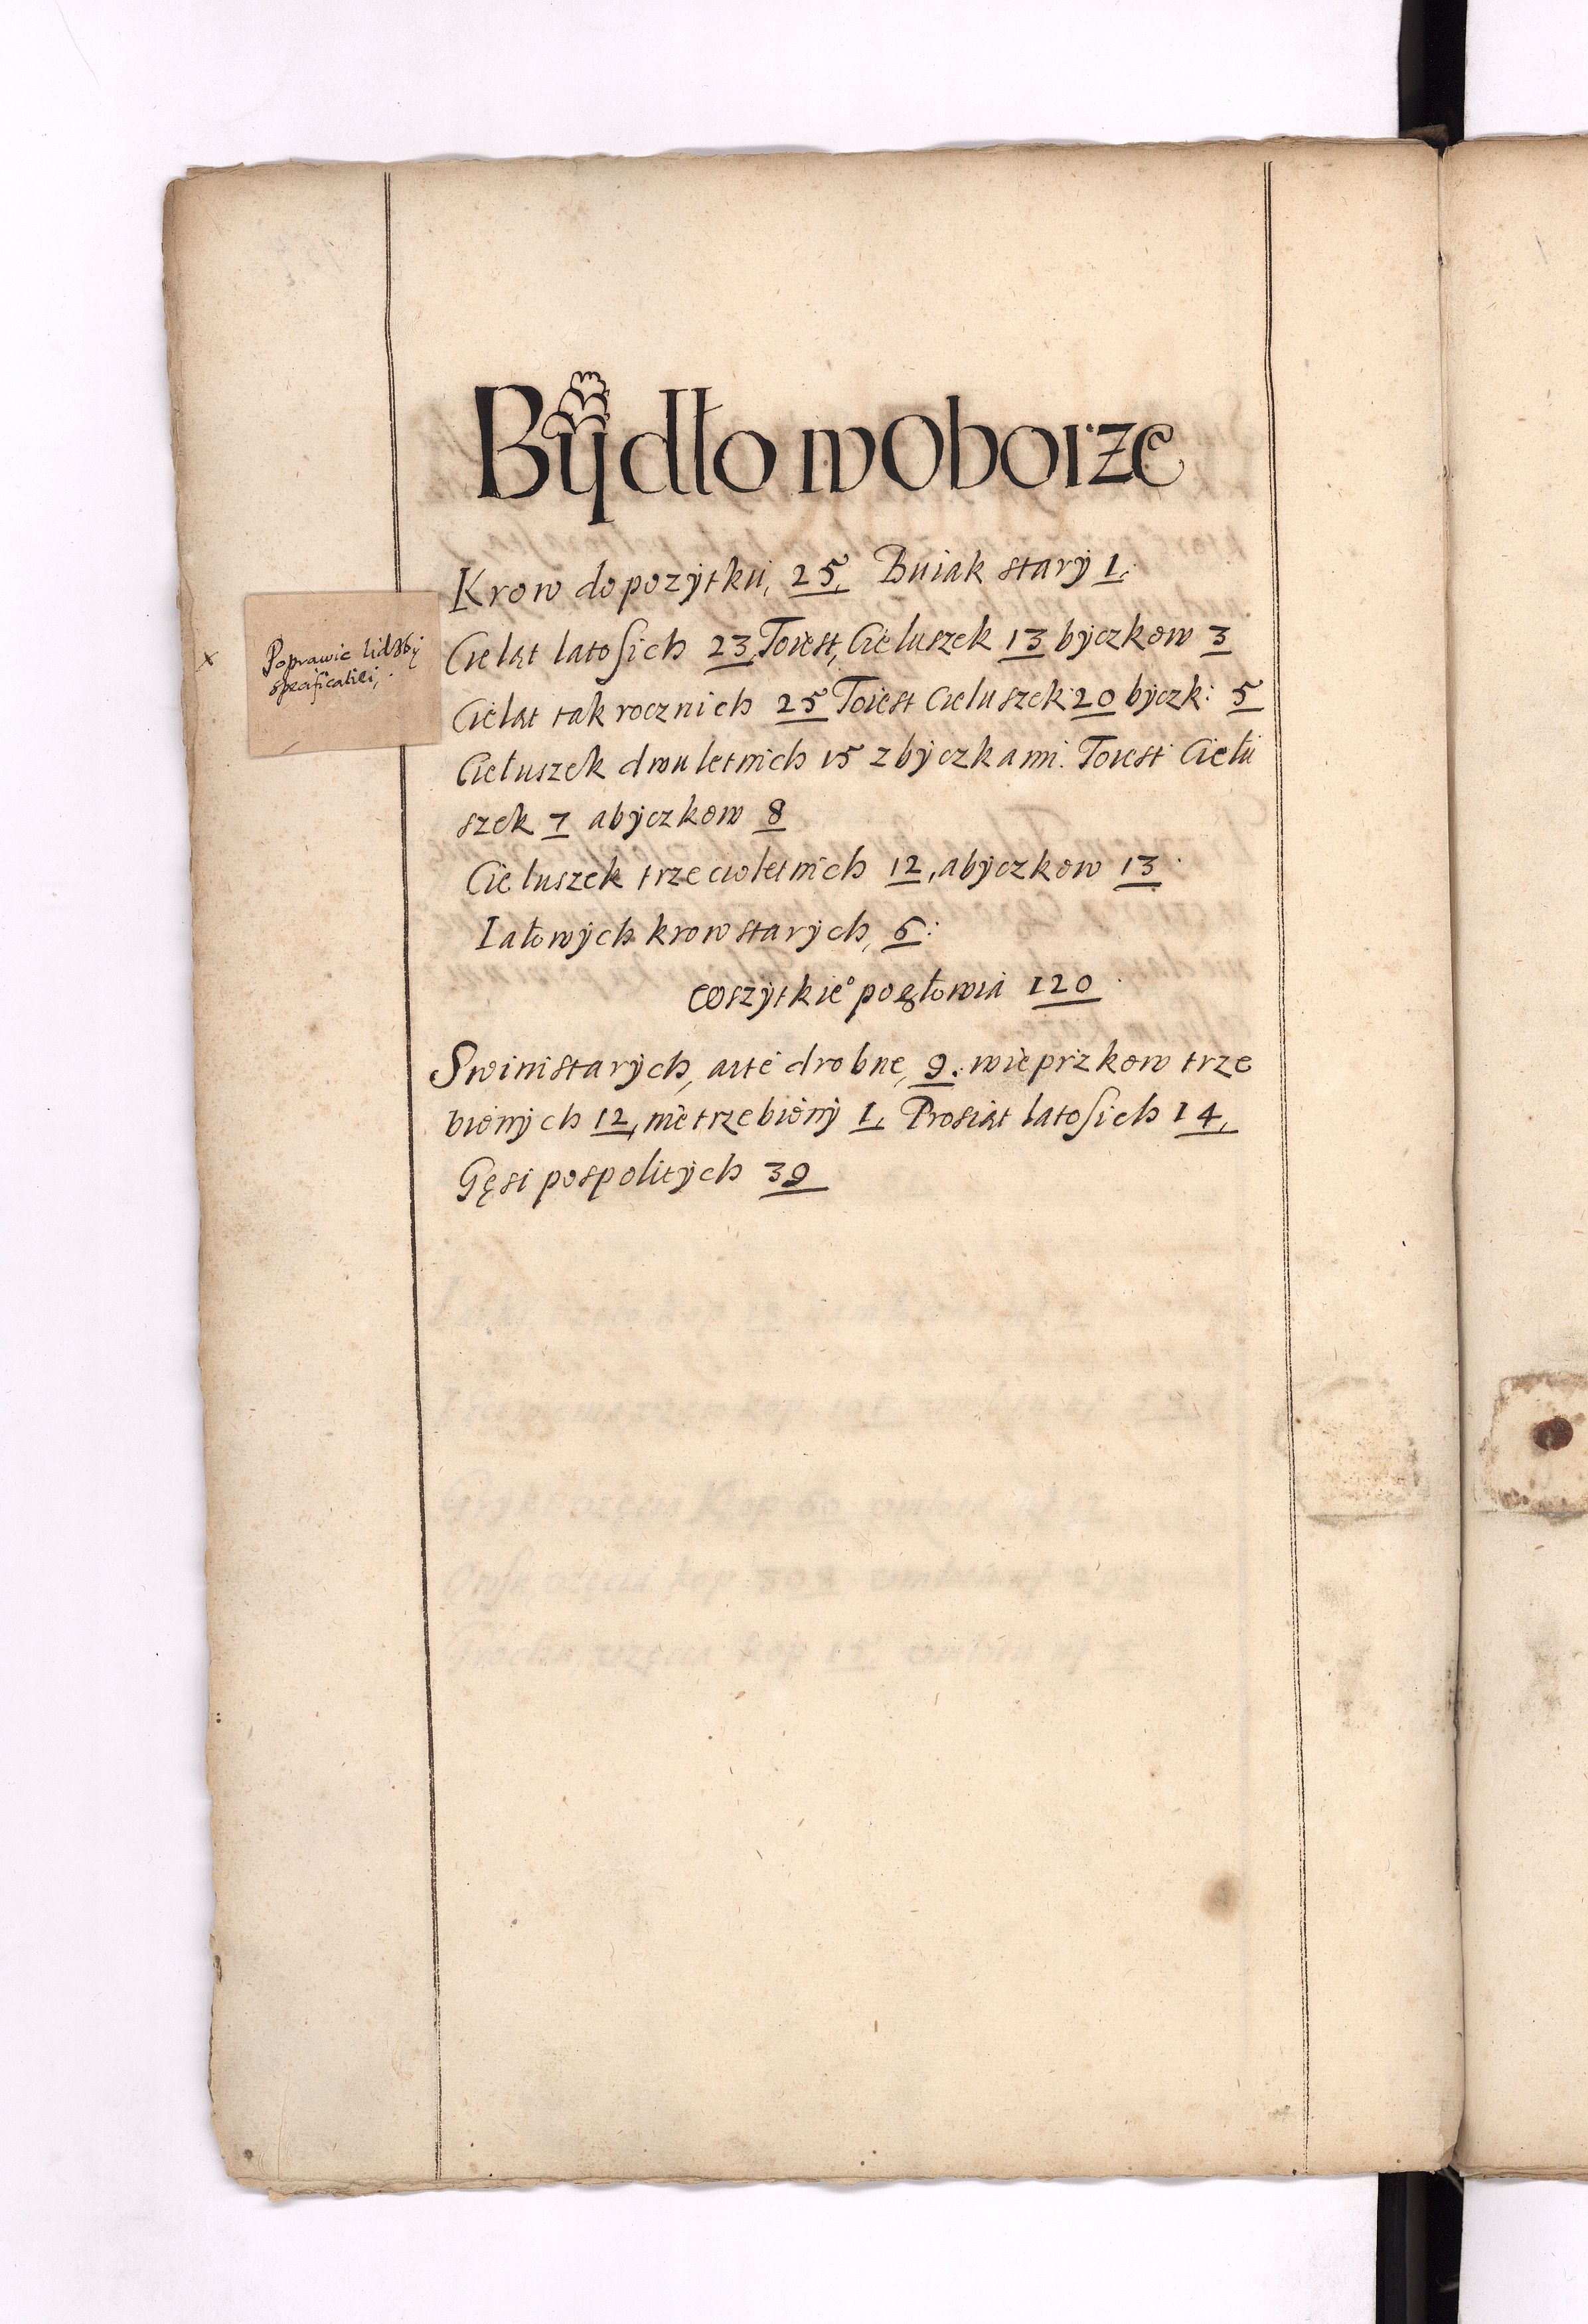 Bydło w Oborze
Krow do pozytku, 25, Buiak stary 1.
Cieląt latosich 23, Toiest, Cieluszek 13 byczkow 3
Cieląt tak rocznich 25 Toiest Cieluszek 20 byczk: 5
Cieluszek dwuletnich 15 z byczkami. Toiest Cielu
szek 7 a byczkow 8
Cieluszek trzecioletnich 12, a byczkow 13.
Iałowych krow starych, 6:
wszytkie° pogłowia 120
x
Poprawic lidzby
specificatiei,
Swini starych, ale drobne, 9. wieprzkow trze
bionych 12, nietrzebiony 1, Prosiąt latosich 14,
Gęsi pospolitych 39